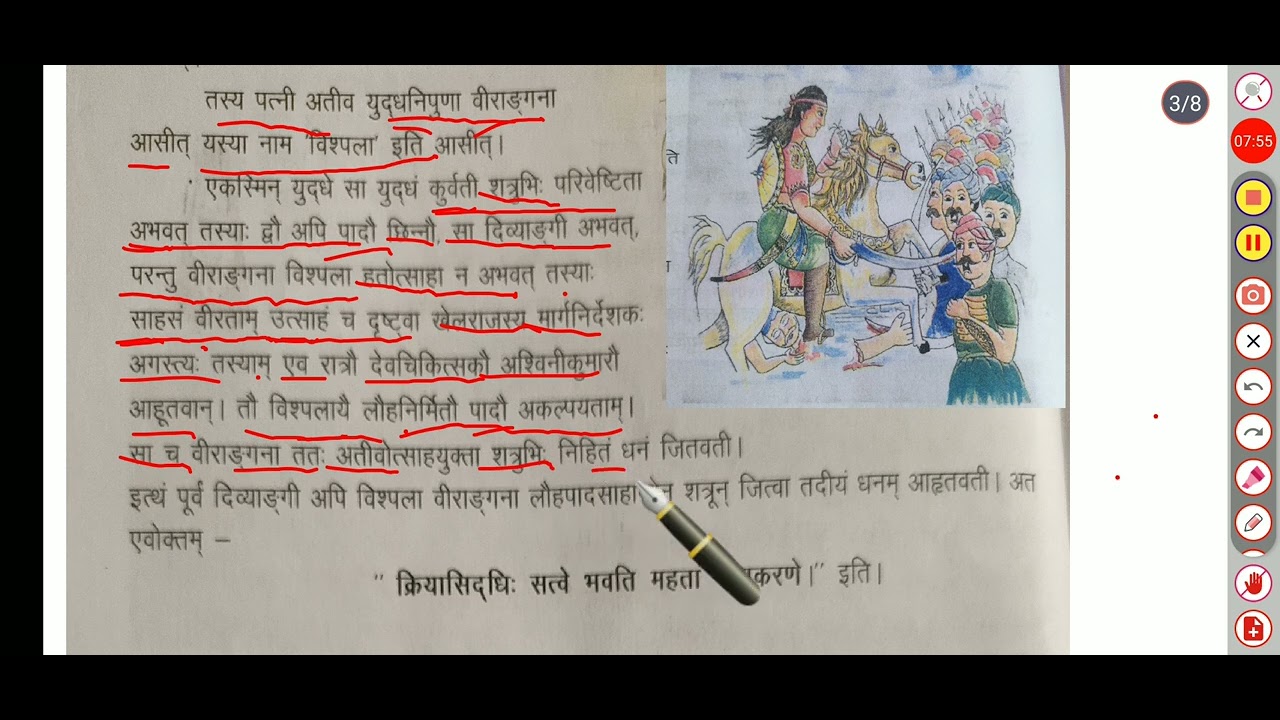 तस्य पत्नी अतीव युद्धनिपुणा वीराङ्गना
आसीत् यस्या नाम 'विश्पला' इति आसीत्।
एकस्मिन् युद्धे सा युद्धं कुर्वती शत्रुभिः परिवेष्टिता
अभवत् तस्याः द्वौ अपि पादौ छिन्नौ, सा दिव्याङ्गी अभवत्,
परन्तु वीराङ्गना विश्पला हतोत्साहा न अभवत् तस्याः
साहसं वीरताम् उत्साहं च दृष्ट्वा खेलराजस्य मार्गनिर्देशकः
अगस्त्यः तस्याम् एव रात्रौ देवचिकित्सकौ अश्विनीकुमारौ
आहूतवान्। तौ विश्पलायै लौहनिर्मितौ पादौ अकल्पयताम्।
सा च वीराङ्गना ततः अतीवोत्साहयुक्ता शत्रुभिः निहितं धनं जितवती।
इत्थं पूर्वं दिव्याङ्गी अपि विश्पला वीराङ्गना शत्रून् जित्वा तदीयं धनम् आहृतवती। अत
एवोक्तम् –
" क्रियासिद्धिः सत्वे भवति महता इति।
ते
3/8
07:55